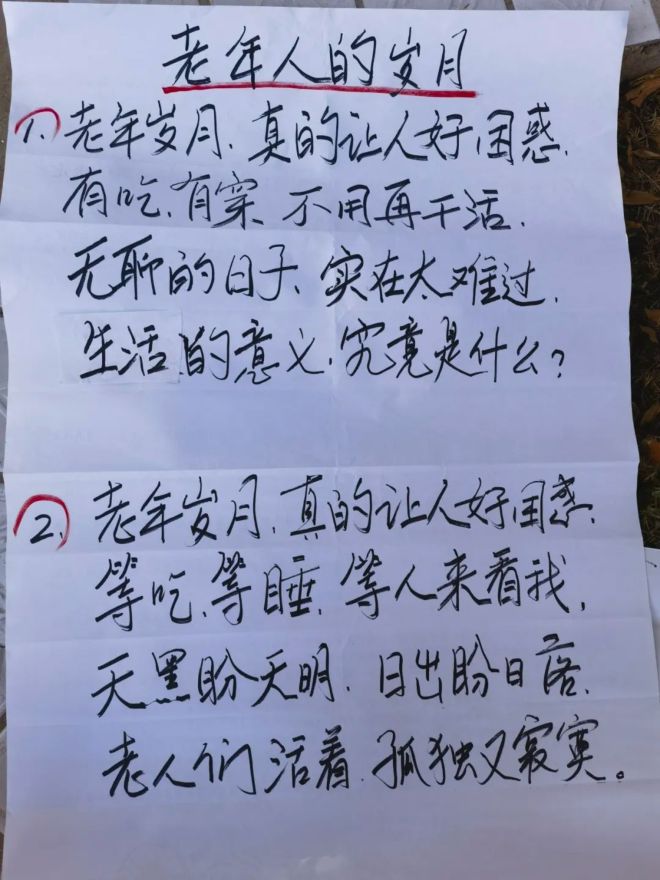 老年人的岁月
1. 老年岁月、真的让人好困惑、
有吃、有穿、不用再干活、
无聊的日子、实在太难过、
生活的意义、究竟是什么?
2. 老年岁月、真的让人好困惑、
等吃、等睡、等人来看我,
天黑盼天明、日出盼日落、
老人们活着、孤独又寂寞。